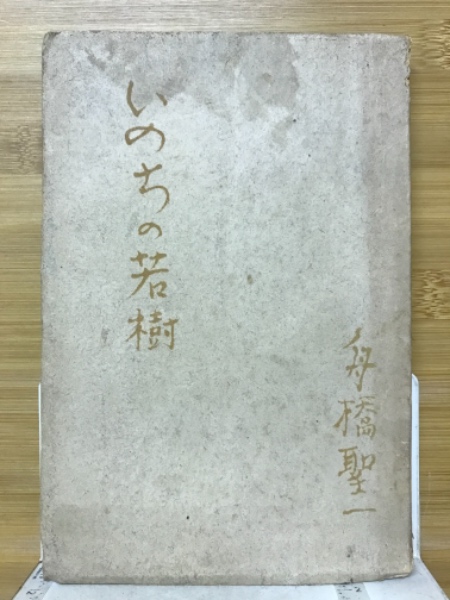 いのちの若樹
舟橋聖一